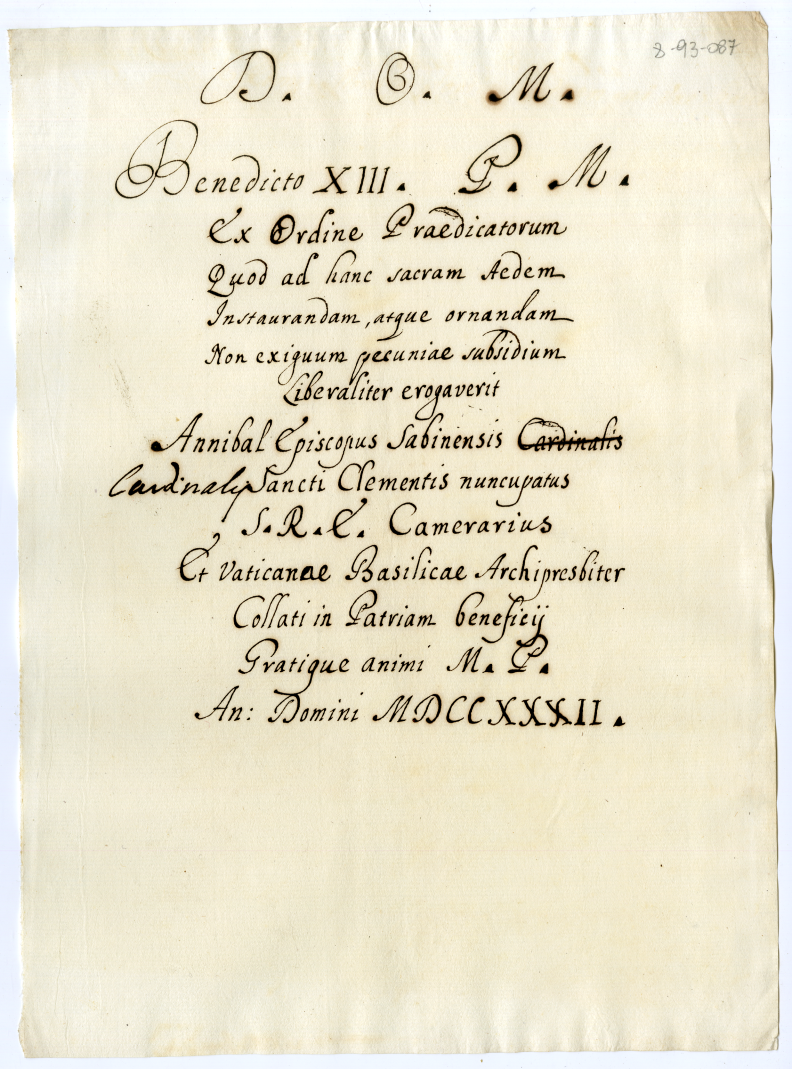 8-93-087
D. O. M.
Benedicto XIII. P. M.
Ex Ordine Praedicatorum
Quod ad hanc sacram Aedem
Instaurandam, atque ornandam
Non exiguum pecuniae subsidium
Liberaliter erogaverit
Annibal Episcopus Sabinensis Cardinalis
Cardinalis Sancti Clementis nuncupatus
S. R. E. Camerarius
Et Vaticanae Basilicae Archipresbiter
Collati in Patriam beneficij
Gratique animi M. P.
An: Domini MDCCXXXII.